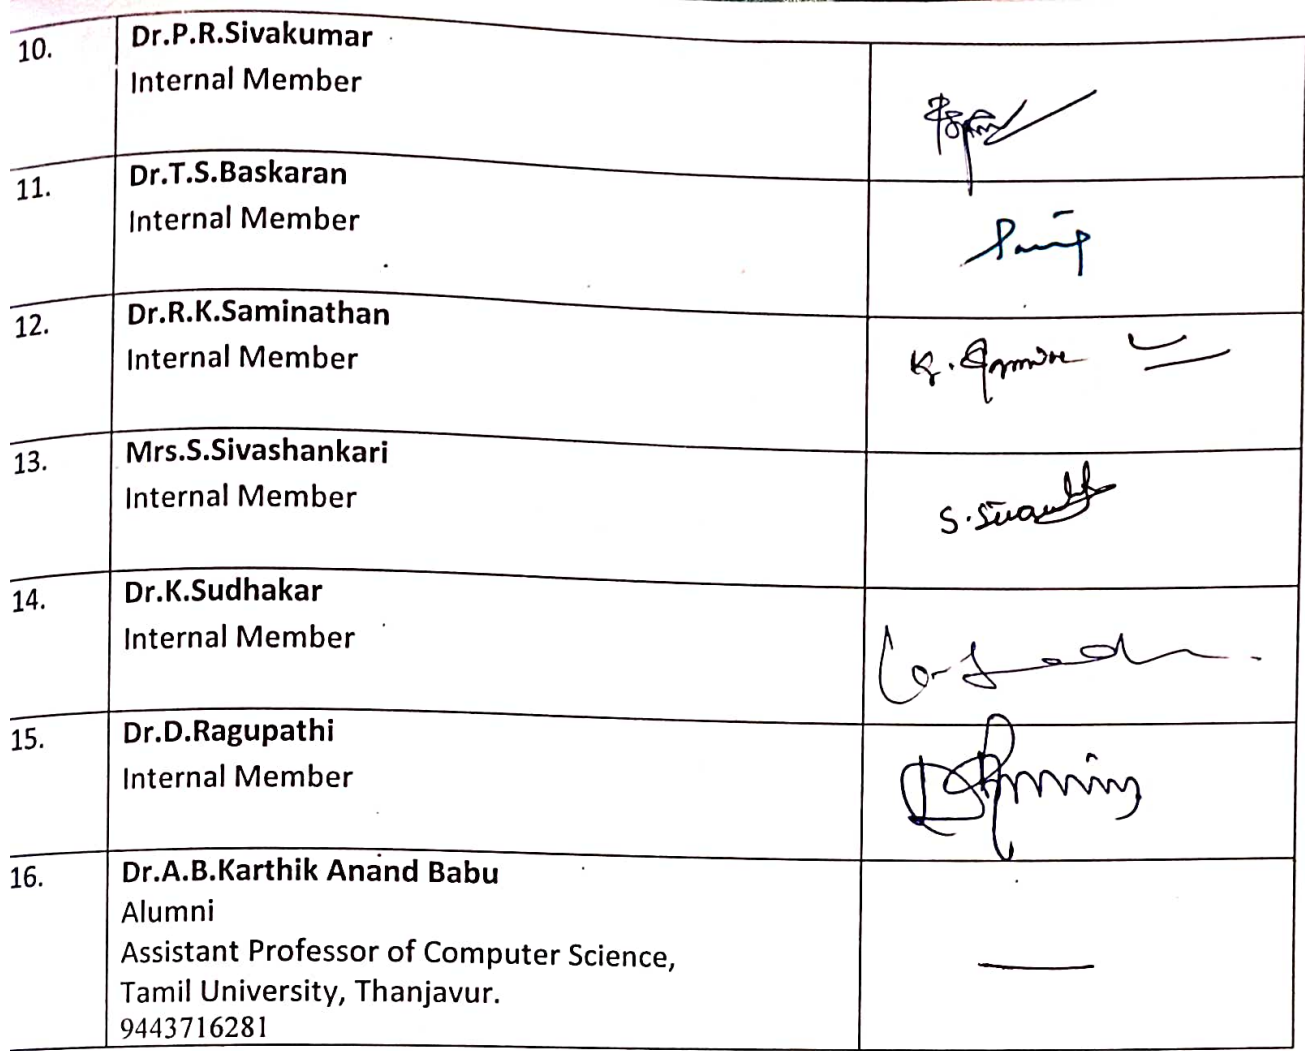 10.
Dr.P.R.Sivakumar
Internal Member
11.
Dr.T.S.Baskaran
Internal Member
12.
Dr.R.K.Saminathan
Internal Member
13.
Mrs.S.Sivashankari
Internal Member
14.
Dr.K.Sudhakar
Internal Member
15.
Dr.D.Ragupathi
Internal Member
16.
Dr.A.B.Karthik Anand Babu
Alumni
Assistant Professor of Computer Science,
Tamil University, Thanjavur.
9443716281